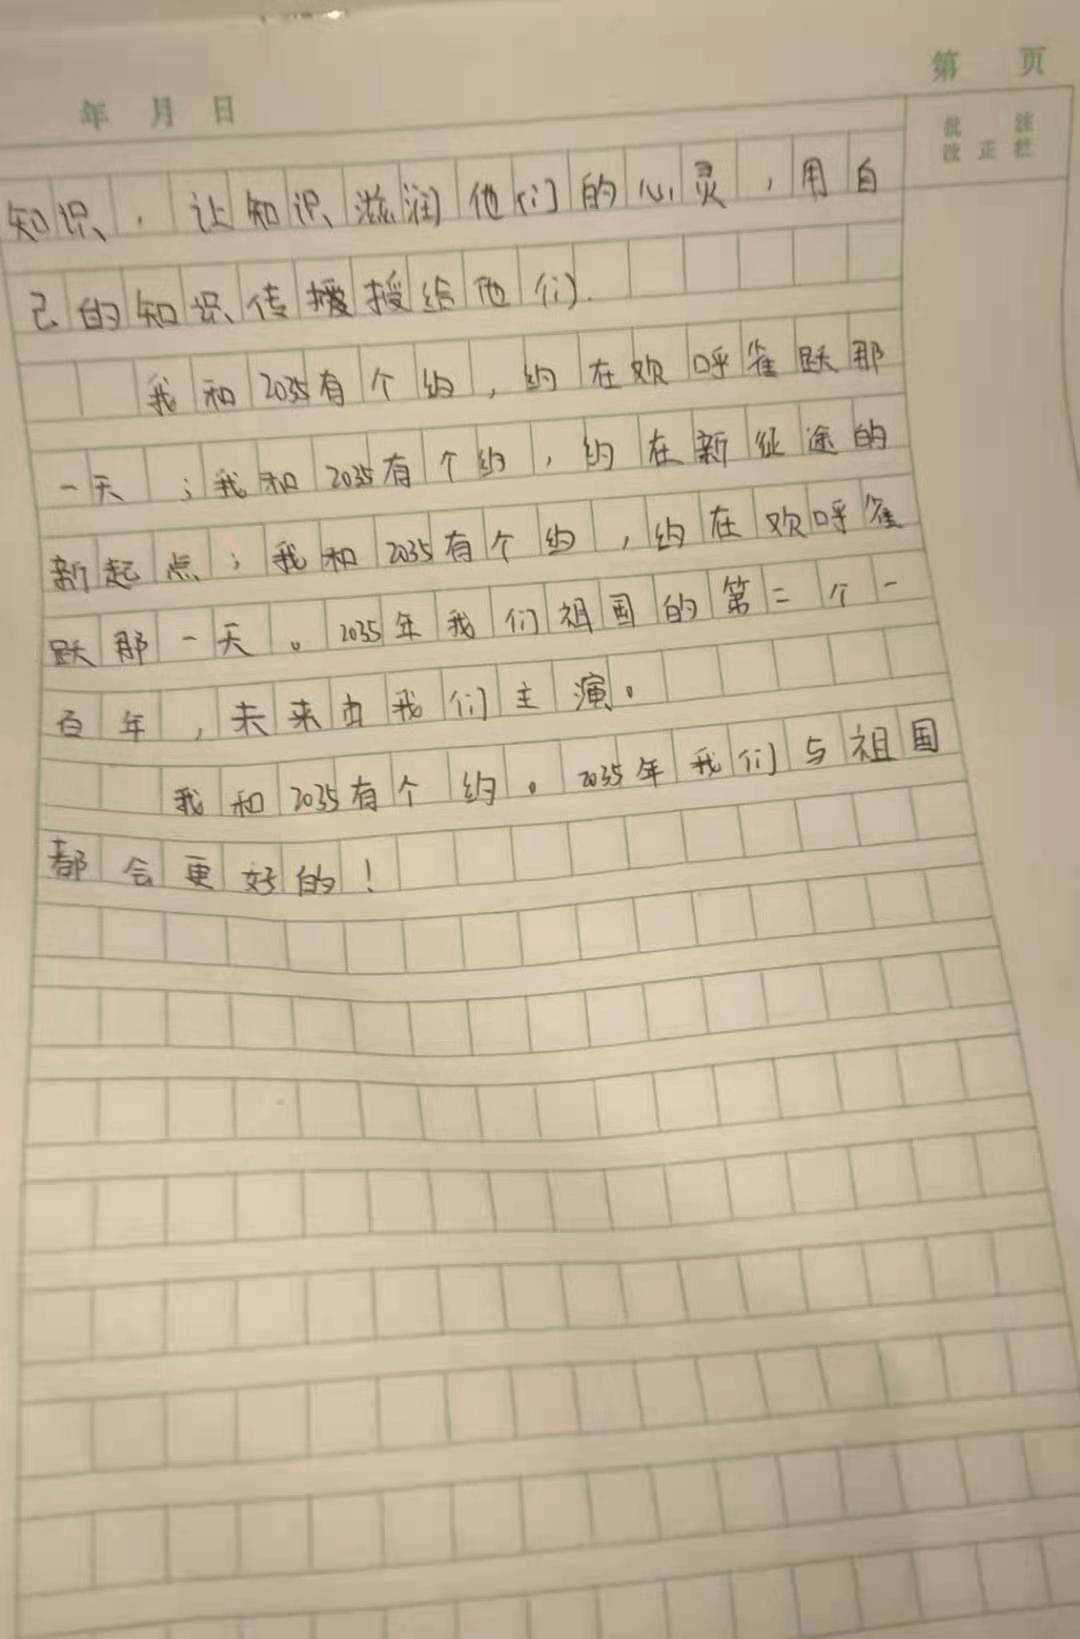 第 页
年 月 日
批 注
改 正 栏
知识，让知识滋润他们的心灵，用自
己的知识传授给他们.
我和2035有个约，约在欢呼雀跃那
一天；我和2035有个约，约在新征途的
新起点；我和2035有个约，约在欢呼雀
跃那一天。2035年我们祖国的第二个一
百年，未来由我们主演。
我和2035有个约。2035年我们与祖国
都会更好的！